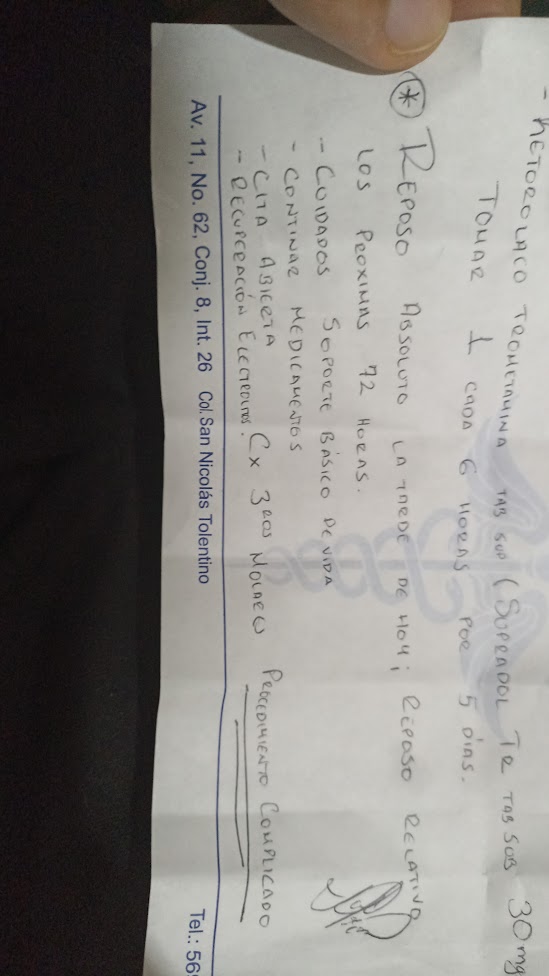 - KETOROLACO TROMETAMINA TAB SUB (SUPRADOL TR TAB SUB 30mg
TOMAR 1 CADA 6 HORAS POR 5 DÍAS.
* REPOSO ABSOLUTO LA TARDE DE HOY; REPOSO RELATIVO
LOS PROXIMAS 72 HORAS.
- CUIDADOS SOPORTE BÁSICO DE VIDA
- CONTINAR MEDICAMENTOS
- CITA ABIERTA CX 3ros MOLARES PROCEDIMIENTO COMPLICADO
- RECUPERACIÓN
Av. 11, No. 62, Conj. 8, Int. 26 Col. San Nicolás Tolentino Tel.: 56